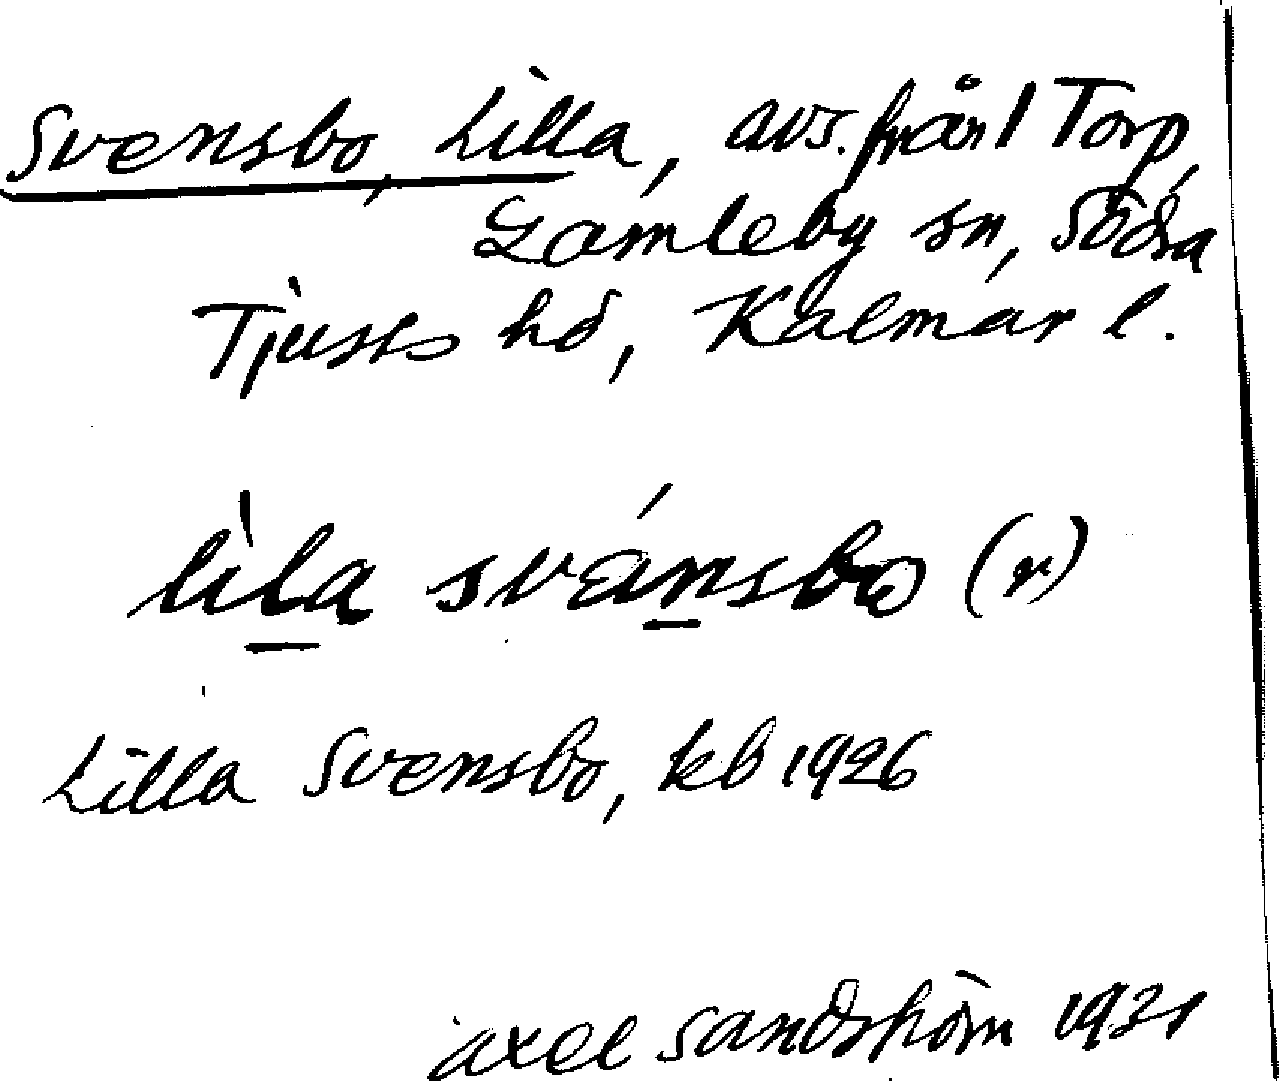 Svensbo, Lilla, avs. från 1 Torp,
Gamleby sn, Södra
Tjusts hd, Kalmar l.
lìla svánsbo (n)
Lilla Svensbo, kb 1926
Axel Sandström 1931